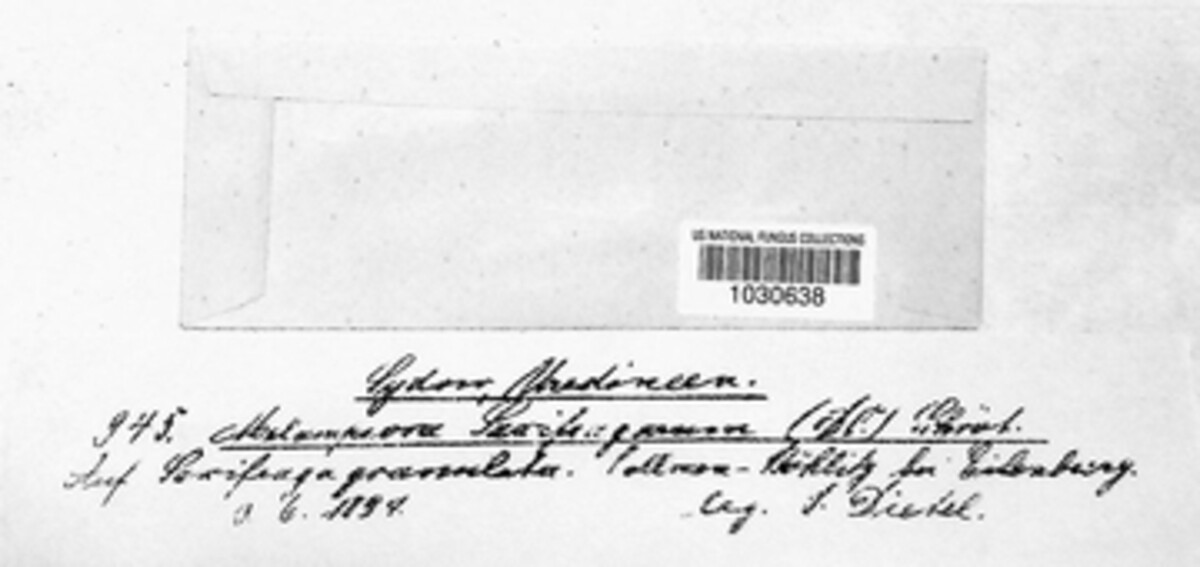 US NATIONAL FUNGUS COLLECTIONS
1030638
Sydow, Uredineen.
945. Melampsora Saxifragarum (DC.) Schröt.
Auf Saxifraga granulata. bei Eilenburg.
6. 1894. leg. P. Dietel.